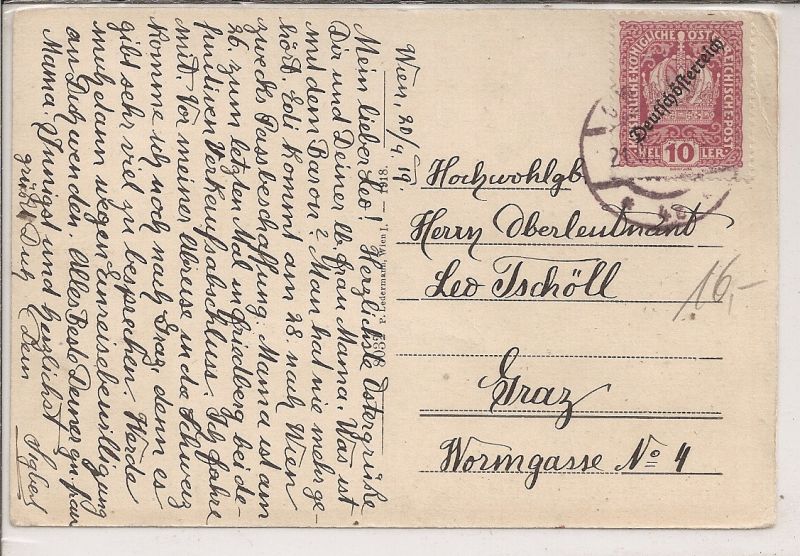 Wien, 20/4 19.
Mein lieber Leo! Herzlichste Ostergrüsse
Dir und Deiner lb. Frau Mama. Was ist
mit dem Baron? Man hat nie mehr ge-
hört. Loli kommt am 28. nach Wien
zwecks Passbeschaffung. Mama ist am
26. zum letzten Mal in Friedberg bei de-
finitiven Verkaufsabschluss. Ich fahre
mit. Vor meiner Abreise in die Schweiz
komme ich noch nach Graz, denn es
gibt sehr viel zu besprechen. Werde
mich dann wegen Einreisebewilligung
an Dich wenden. Alles Beste Deiner gn. Frau
Mama. Innigst und herzlichst
grüßt Dich Dein
P. Ledermann, Wien I. 1918.
KAISERLICHE KÖNIGLICHE ÖSTERREICHISCHE POST
Deutschösterreich
HEL 10 LER
Hochwohlgb
Herrn Oberleutnant
Leo Tschöll
Graz
Wormgasse No 4
16,-